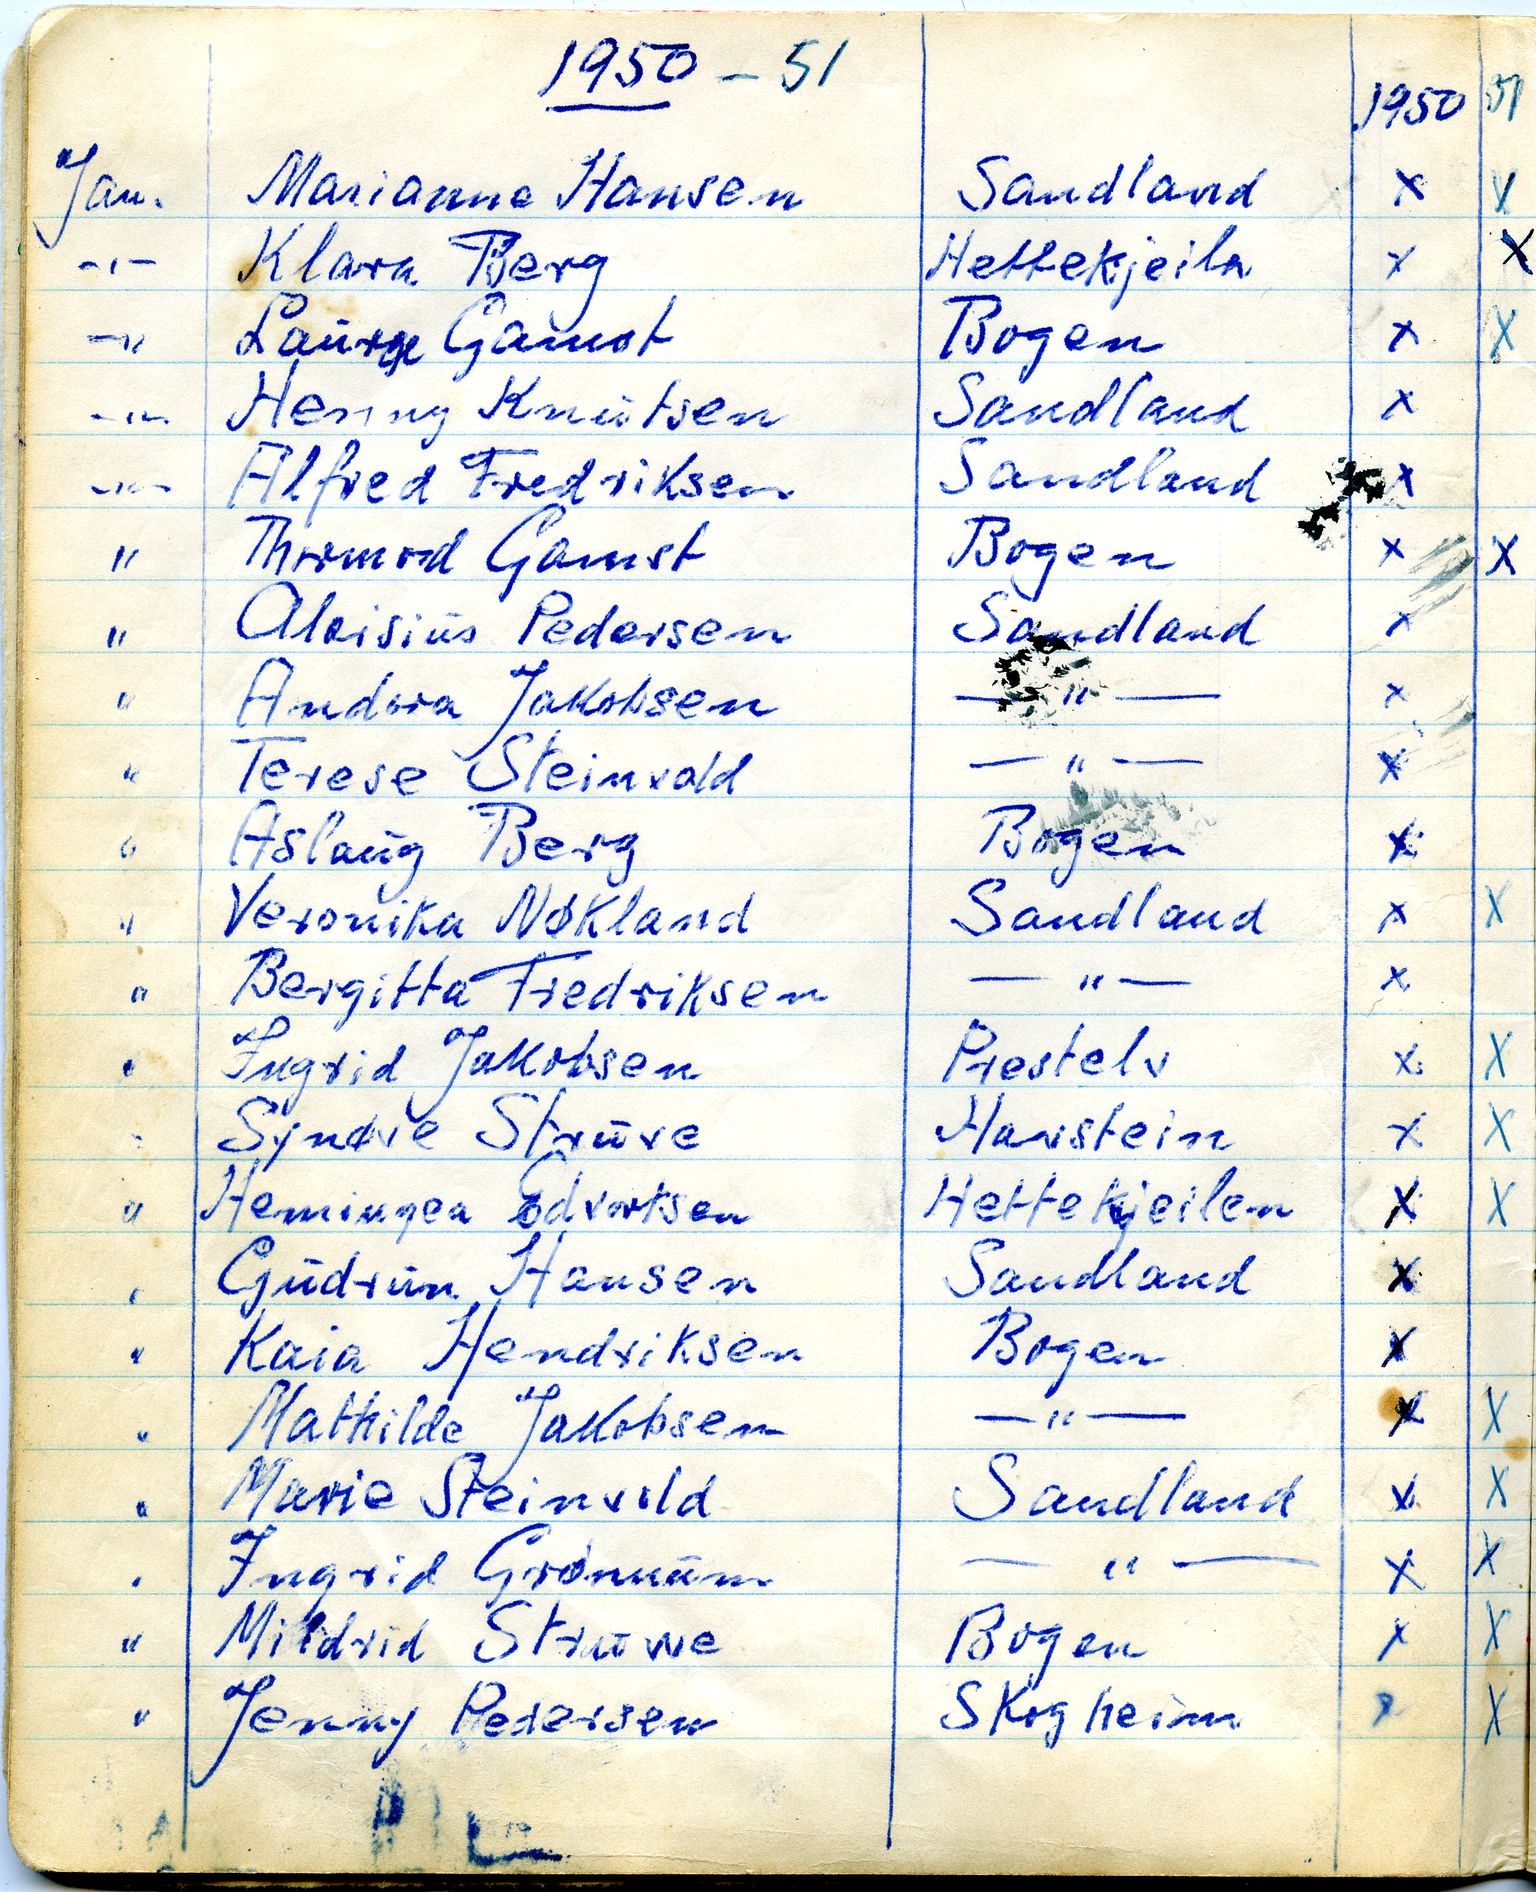 1950 - 51
1950 51
Jan. Marianne Hansen Sandland x x
-"- Klara Berg Hettekjeila x x
-"- Gamst Bogen x x
-"- Henny Knutsen Sandland x
-"- Alfred Fredriksen Sandland x
" Thormod Gamst Bogen x x
" Aloisius Pedersen Sandland x
" Andora Jakobsen -"- x
" Terese Steinvold -"- x
" Aslaug Berg Bogen x
" Veronika Nøkland Sandland x x
" Bergitta Fredriksen -"- x
" Ingrid Jakobsen Prestelv x x
" Synøve Struve Havstein x x
" Hemingea Edvartsen Hettekjeilen x x
" Gudrun Hansen Sandland x
" Kaia Hendriksen Bogen x
" Mathilde Jakobsen -"- x x
" Marie Steinvold Sandland x x
" Ingrid Grønnum -"- x x
" Mildrid Struwe Bogen x x
" Jenny Pedersen Skogheim x x